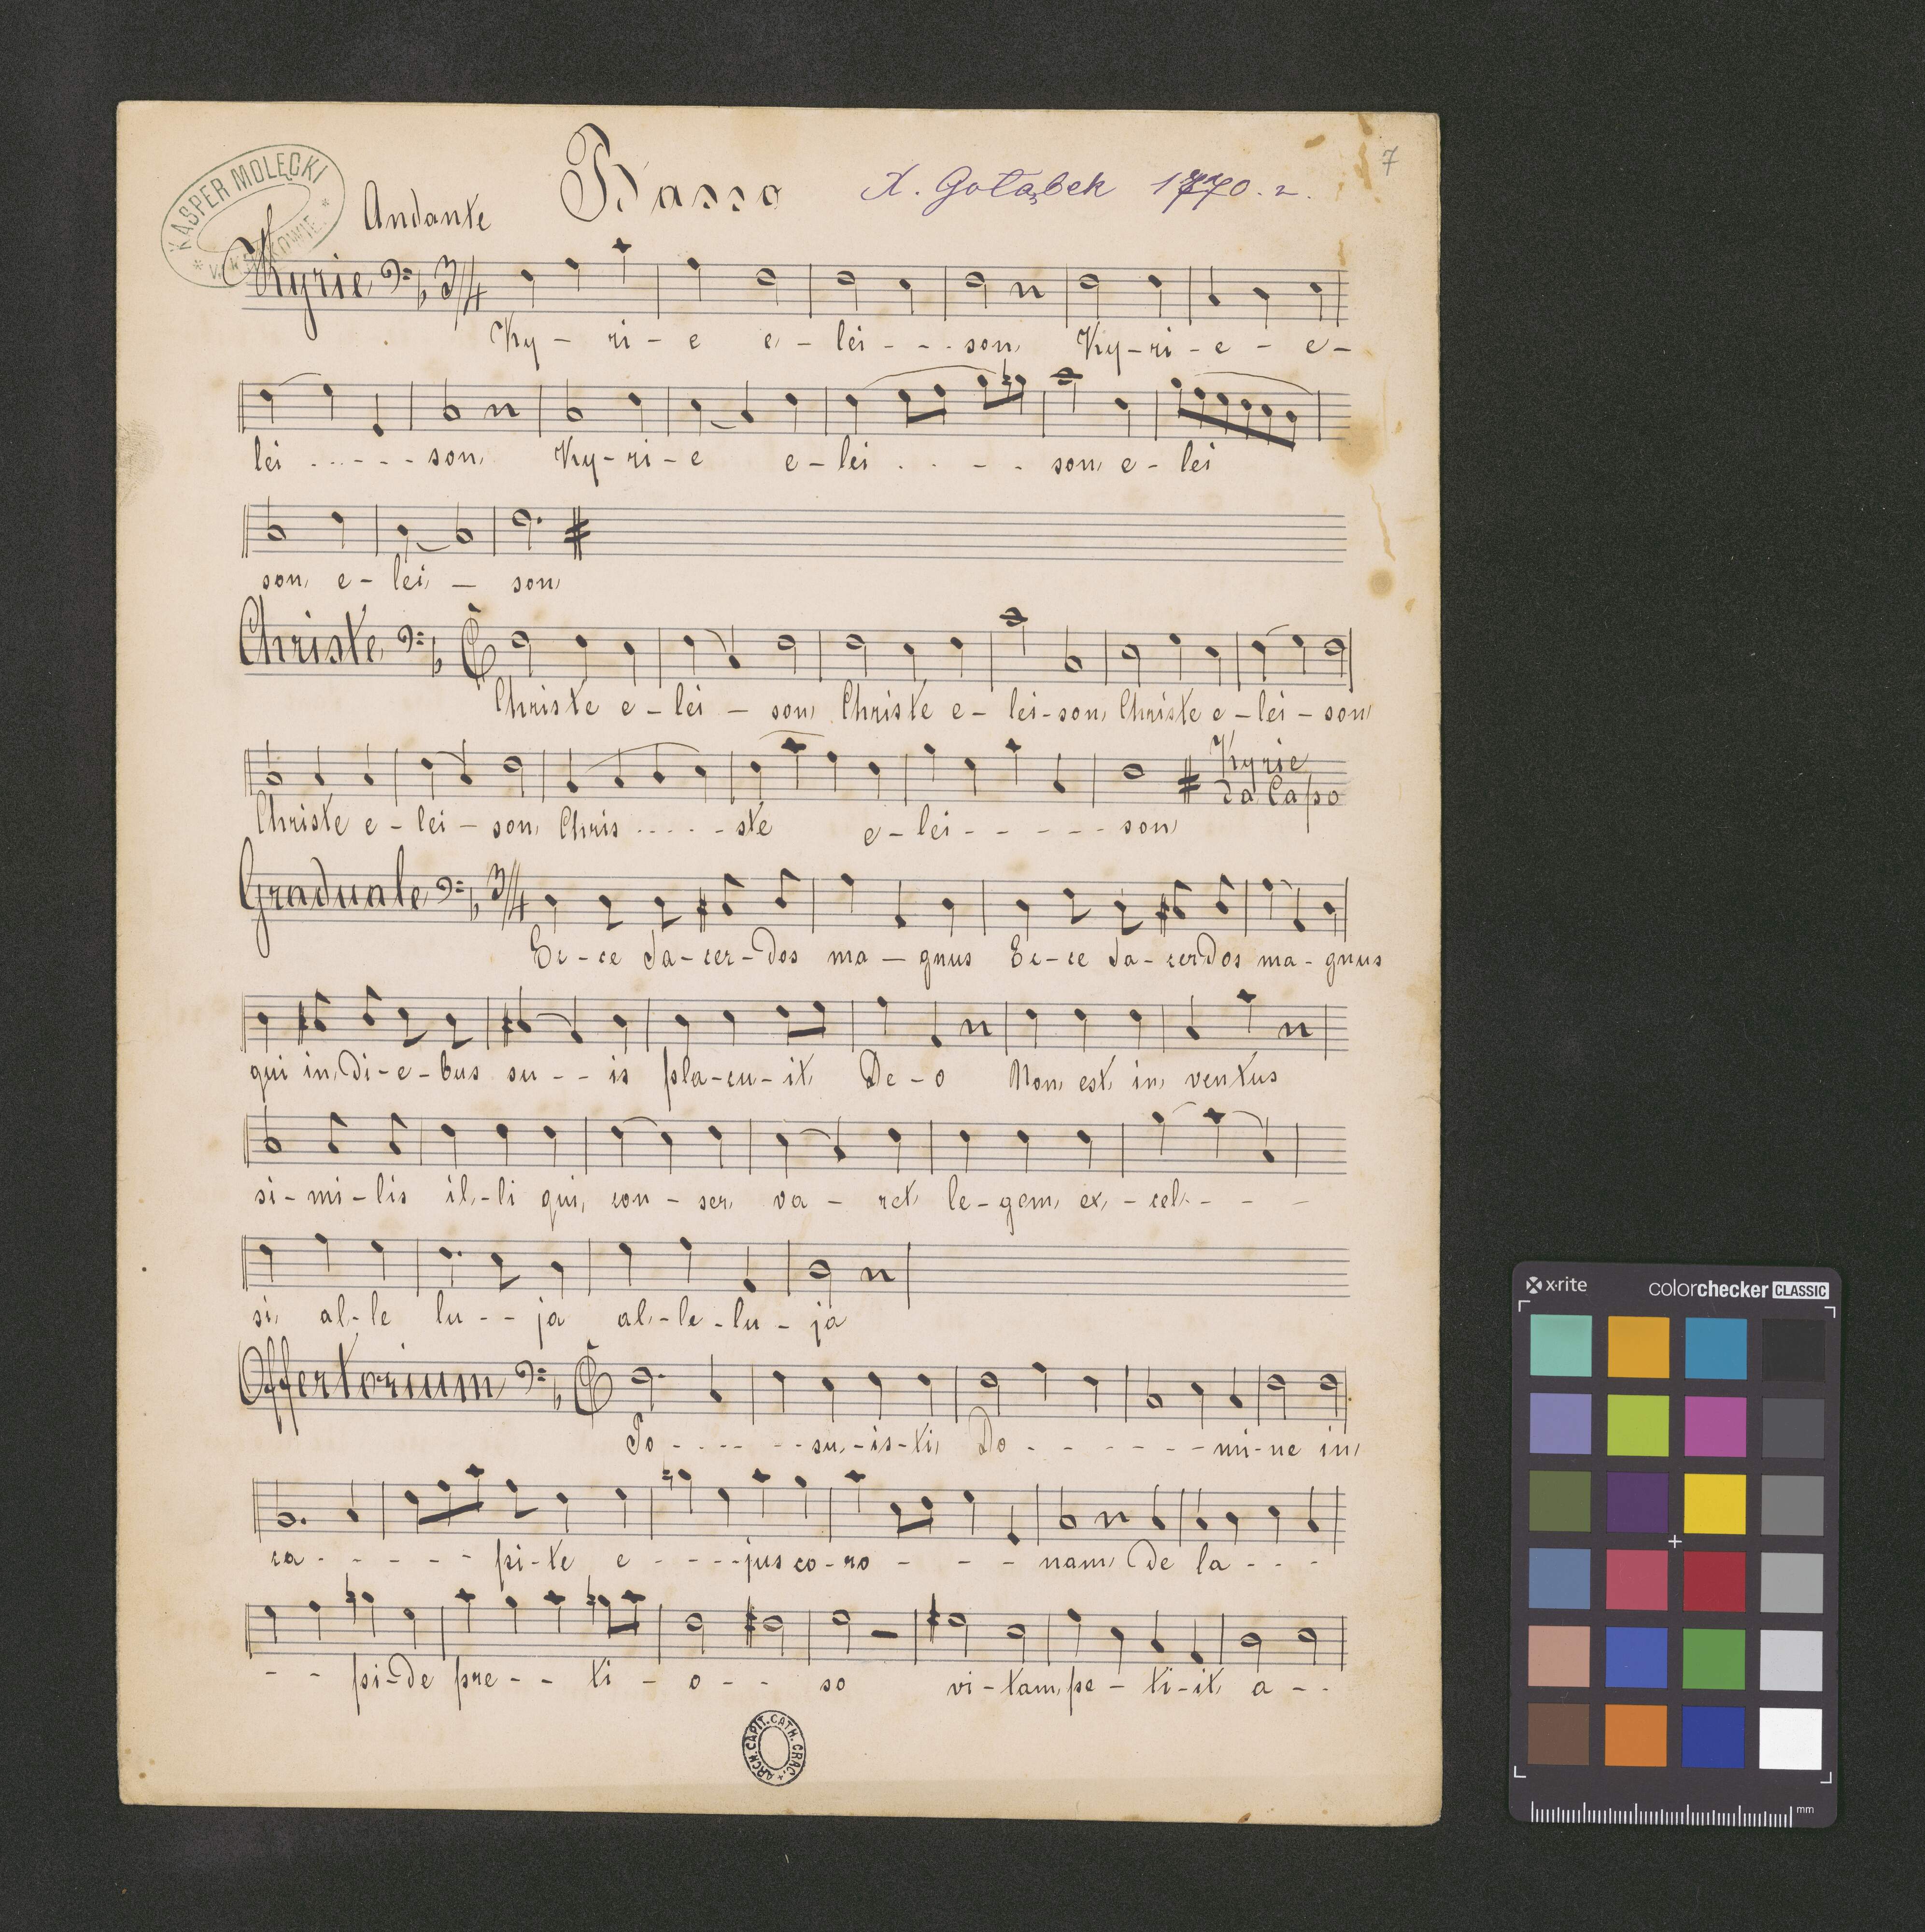 KASPER MOLĘCKI
W KRAKOWIE
Basso
X. Gołąbek 1770. r.
7
Andante
Kyrie 3/4
Ky – ri – e e – lei - - - son Ky – ri – e – e –
lei - - - - - son Ky – ri – e e – lei - - - - son e – lei
son e – lei – son
Christe
Christe e – lei – son Christe e – lei – son Christe e – lei – son
Kyrie
da Capo
Christe e – lei – son Chris - - - - - ste e – lei - - - - - son
Graduale 3/4
Ec – ce Sa – cer – dos ma – gnus Ec – ce Sa – cerdos ma – gnus
qui in di – e – bus su - - is pla – cu – it De – o Non est in ventus
si – mi – lis il – li qui con – ser va – ret le – gem ex – cel - - -
si al – le lu - - ja al – le – lu – ja
Offertorium
Po - - - - - - su – is – ti Do - - - - - - mi – ne in
ca - - - - - pi – te e - - - - jus co – ro - - - nam De la - - -
- - pi – de pre - - ti – o - - so vi – tam pe – ti – it a - -
ARCH. CAPIT. CATH. CRAC.
x·rite colorchecker CLASSIC
mm